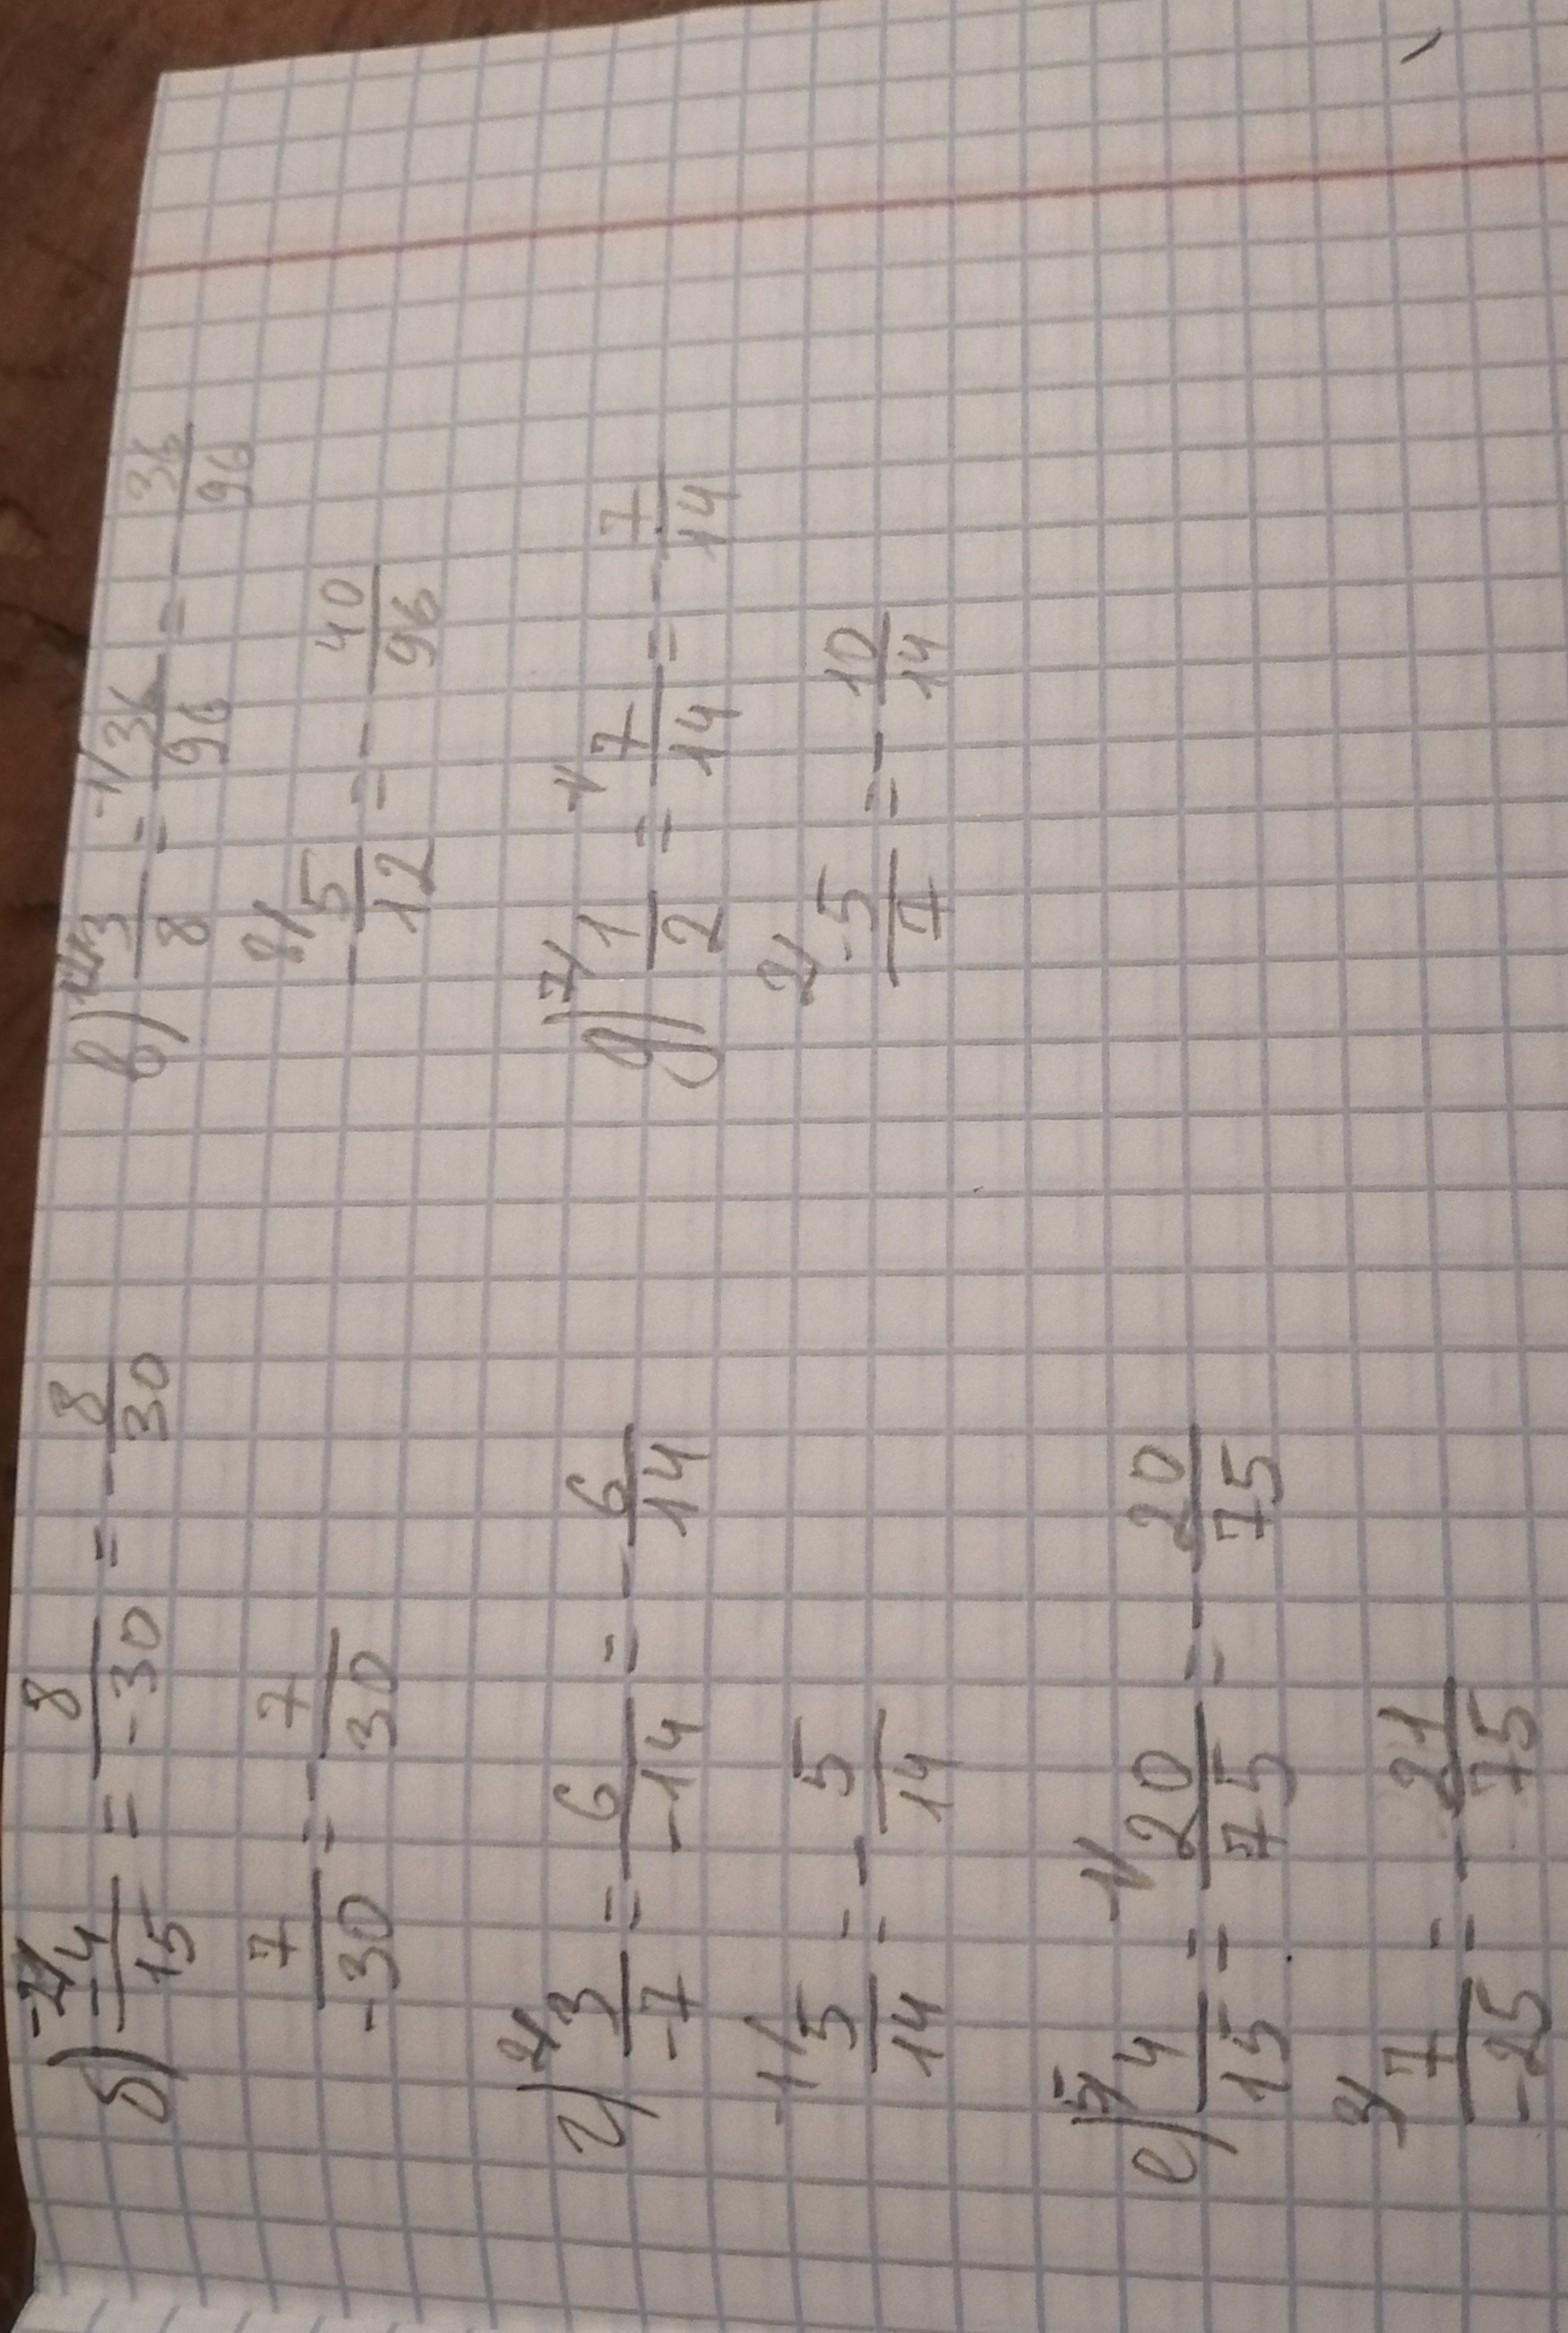 б) -2/ -4/15 = 8/-30 = - 8/30
7/-30 = - 7/30
в) 12/ 3/8 = -1/ 36/96 = - 36/96
8/ - 5/12 = - 40/96
г) 2/ 3/-7 = 6/-14 = - 6/14
-1/ 5/14 = - 5/14
д) 7/ 1/2 = 7/14 = - 7/14
2/ -5/7 = - 10/14
е) 5/ 4/15 = -1/ 20/75 = - 20/75
3/ 7/-25 = - 21/75